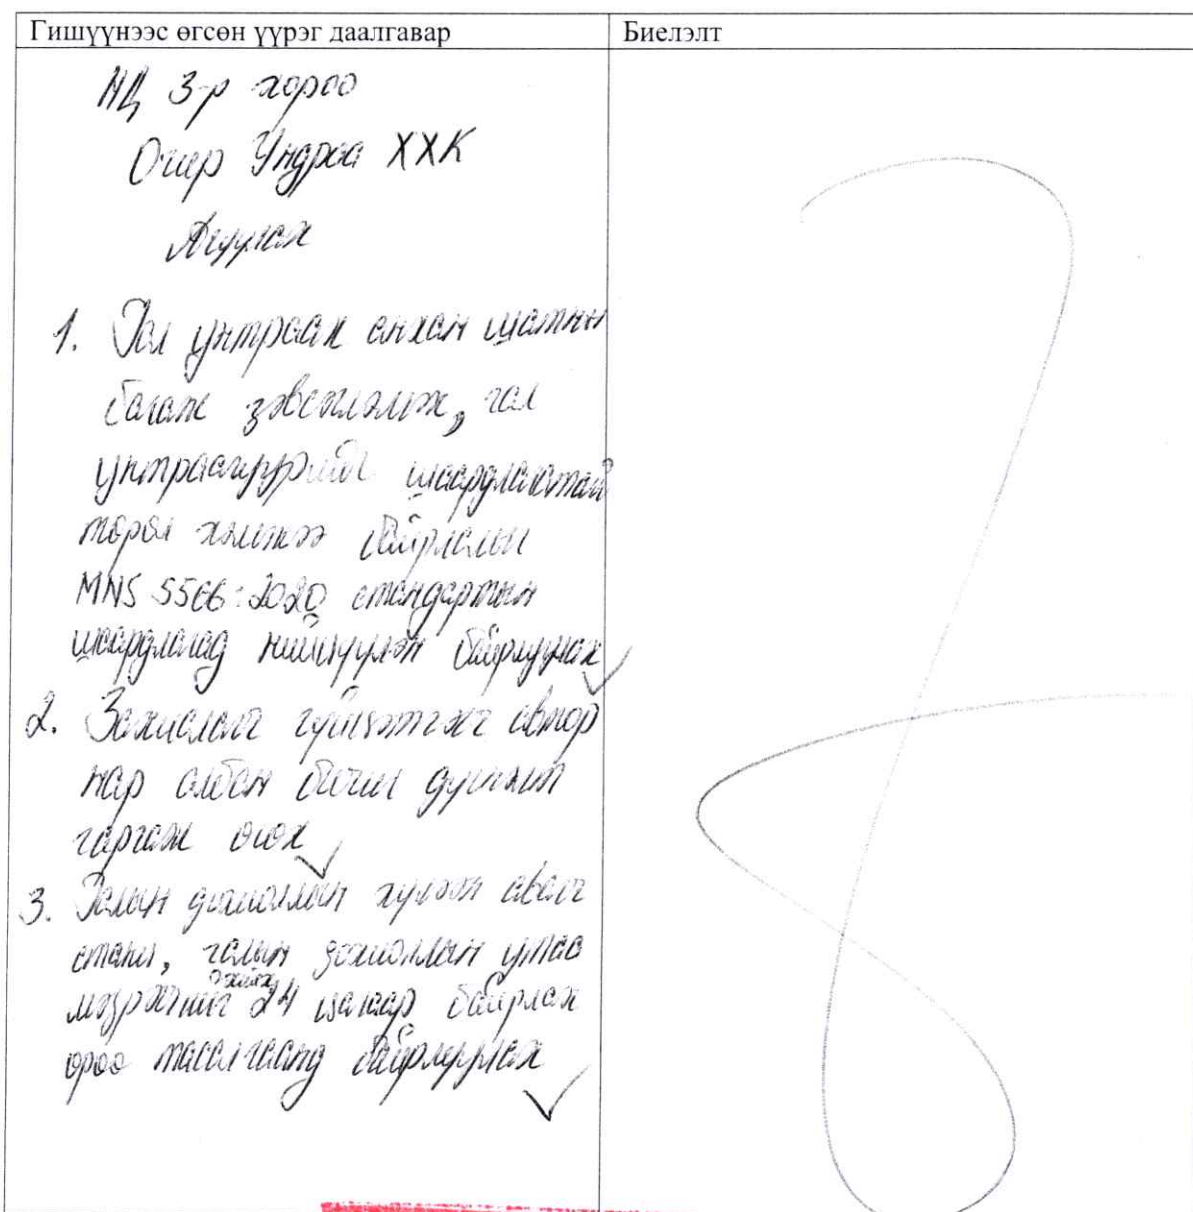 Гишүүнээс өгсөн үүрэг даалгавар
Биелэлт
НД 3-р хороо
Очир Ундраа ХХК
Агуулах
1. Гал унтраах анхан шатны
багаж зэвсэглэлэх, гал
унтраагуурыг шаардлагатай
төрөл хэмжээ байрлалын
MNS 5566:2020 стандартын
шаардлагад нийцүүлэн байрлуулах
2. Захиалагч гүйцэтгэгч автор
нар албан бичиг дүгнэлт
гаргаж өгөх
3. Галын дохиоллын хүлээн авагч
станц, галын дохиоллын утаа
мэдрэгчийг 24 цагаар байрлах
өрөө тасалгаанд байрлуулах